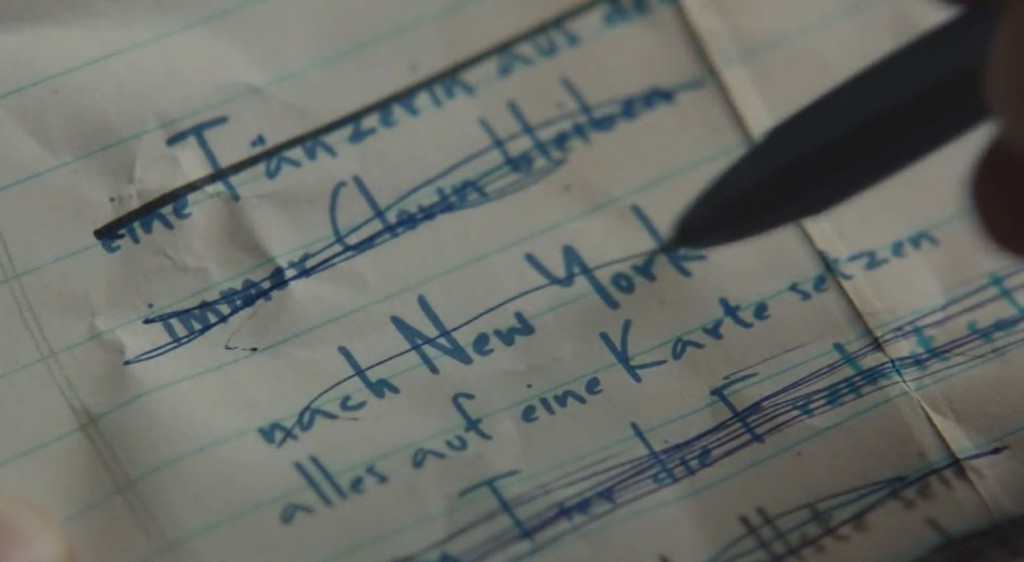 eine Tänzerin aus der
immer Clown bleiben
nach New York
alles auf eine Karte setzen
Tier die
sein